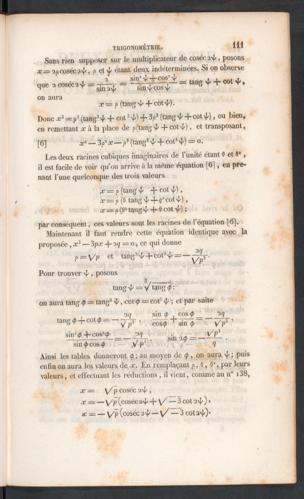 TRIGONOMÉTRIE. 111
Sans rien supposer sur le multiplicateur de coséc 2ψ, posons
x = 2ρ coséc 2ψ, ρ et ψ étant deux indéterminées. Si on observe
que 2 coséc 2ψ = 2 / sin 2ψ = (sin² ψ + cos² ψ) / (sin ψ cos ψ) = tang ψ + cot ψ,
on aura
x = ρ (tang ψ + cot ψ).
Donc x³ = ρ³ (tang³ ψ + cot³ ψ) + 3ρ³ (tang ψ + cot ψ), ou bien,
en remettant x à la place de ρ (tang ψ + cot ψ), et transposant,
[6] x³ − 3ρ²x − ρ³ (tang³ ψ + cot³ ψ) = 0.
Les deux racines cubiques imaginaires de l'unité étant θ et θ²,
il est facile de voir qu'on arrive à la même équation [6], en prenant
l'une quelconque des trois valeurs
x = ρ (tang ψ + cot ψ),
x = ρ (θ tang ψ + θ² cot ψ),
x = ρ (θ² tang ψ + θ cot ψ);
par conséquent, ces valeurs sont les racines de l'équation [6].
Maintenant il faut rendre cette équation identique avec la
proposée, x³ − 3px + 2q = 0, ce qui donne
ρ = √p et tang³ ψ + cot³ ψ = − 2q / √p³.
Pour trouver ψ, posons
tang ψ = ∛tang φ:
on aura tang φ = tang³ ψ, cot φ = cot³ ψ; et par suite
tang φ + cot φ = − 2q / √p³, sin φ / cos φ + cos φ / sin φ = − 2q / √p³,
(sin² φ + cos² φ) / (sin φ cos φ) = − 2q / √p³, sin 2φ = − √p³ / q.
Ainsi les tables donneront φ; au moyen de φ, on aura ψ; puis
enfin on aura les valeurs de x. En remplaçant ρ, θ, θ², par leurs
valeurs, et effectuant les réductions, il vient, comme au n° 138,
x = 2√p coséc 2ψ,
x = − √p (coséc 2ψ + √−3 cot 2ψ),
x = − √p (coséc 2ψ − √−3 cot 2ψ).